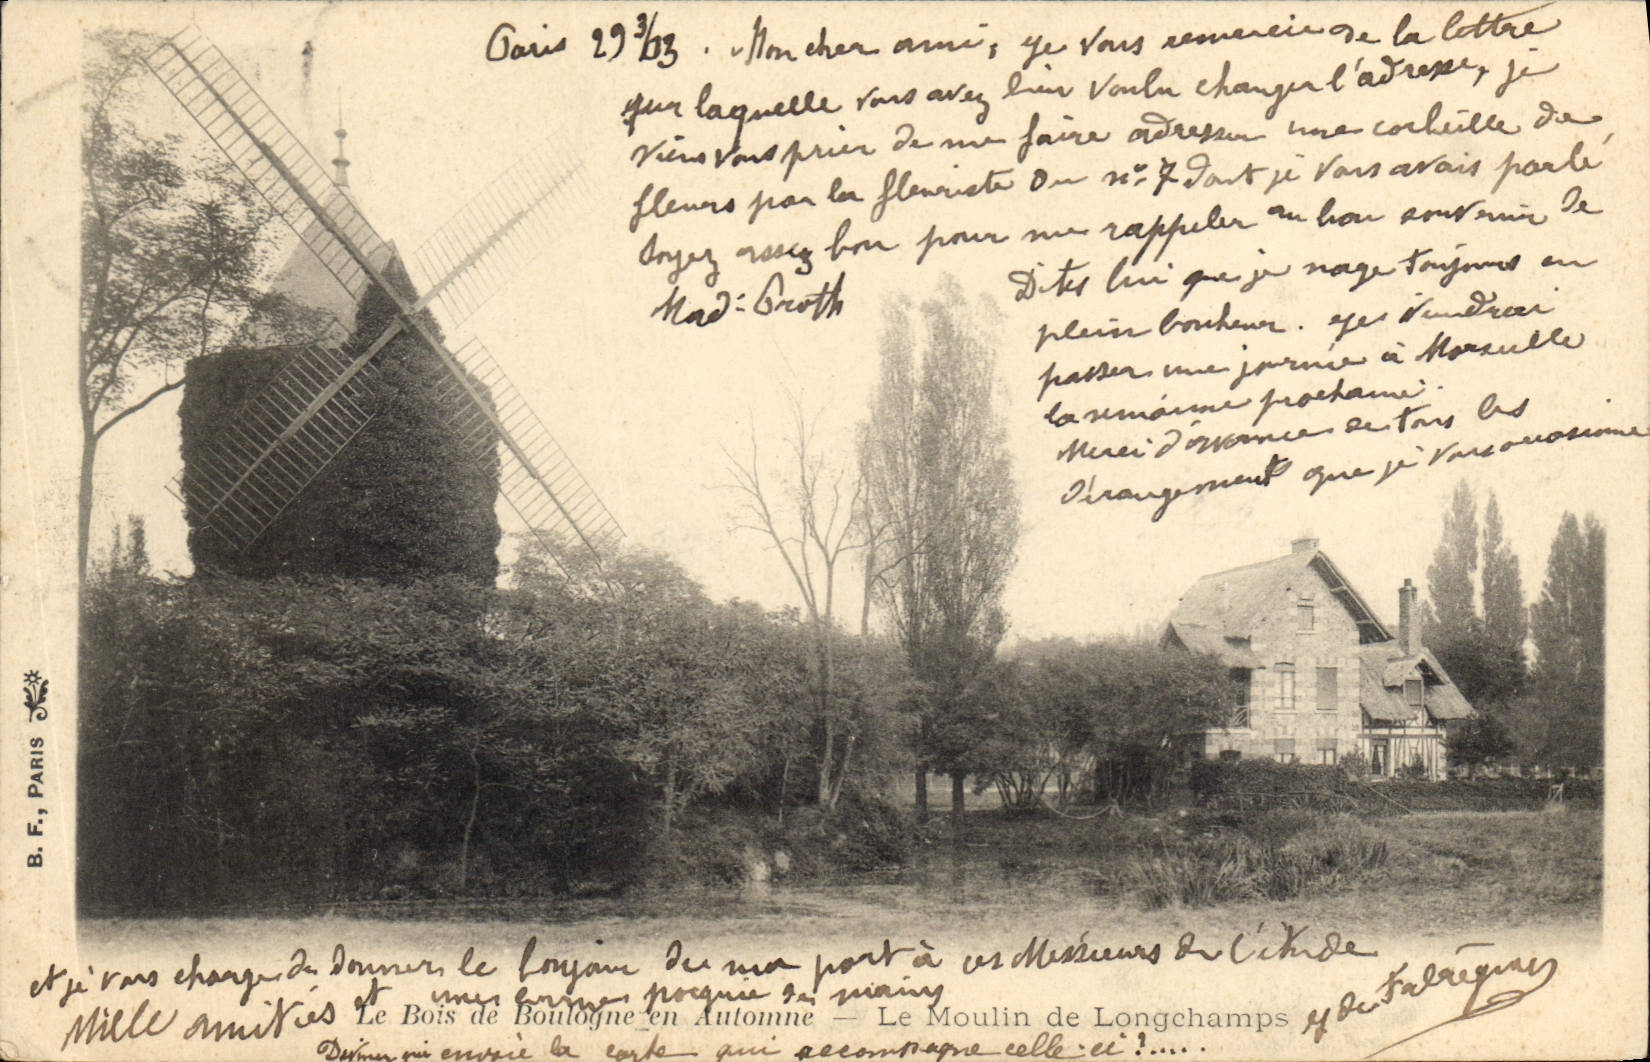 Paris 29 3/03. Mon cher ami, je vous remercie de la lettre
sur laquelle vous avez bien voulu changer l'adresse, je
viens vous prier de me faire adresser une corbeille de
fleurs par la fleuriste du n° 7 dont je vous avais parlé,
soyez assez bon pour me rappeler au bon souvenir de
Mad: Proth
Dites lui que je nage toujours en
plein bonheur. je viendrai
passer une journée à Marseille
la semaine prochaine.
Merci d'avance de tous les
dérangements que je vous occasionne
et je vous charge de donner le bonjour de ma part à ces Messieurs de l'étude
Mille amitiés et une bonne poignée de mains
Y de
Devinez qui envoie la carte qui accompagne celle-ci?.....
Le Bois de Boulogne en Automne — Le Moulin de Longchamps
B. F., PARIS